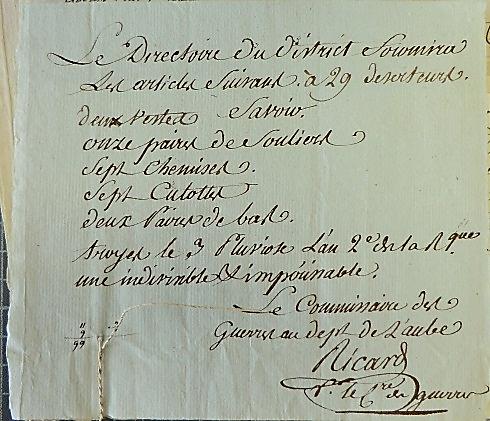 Le Directoire du district fournira
Les articles Suivans. à 29 deserteurs.
Savoir.
deux vestes
onze paires de Souliers
Sept Chemises.
Sept Culottes
deux Paires de bas.
troyes le 3 Pluviose L'an 2e de la Rque
une indivisible & impérissable.
Le Commissaire des
Guerres au dept de L'aube
Ricard
le Cre des guerres
11
9
99